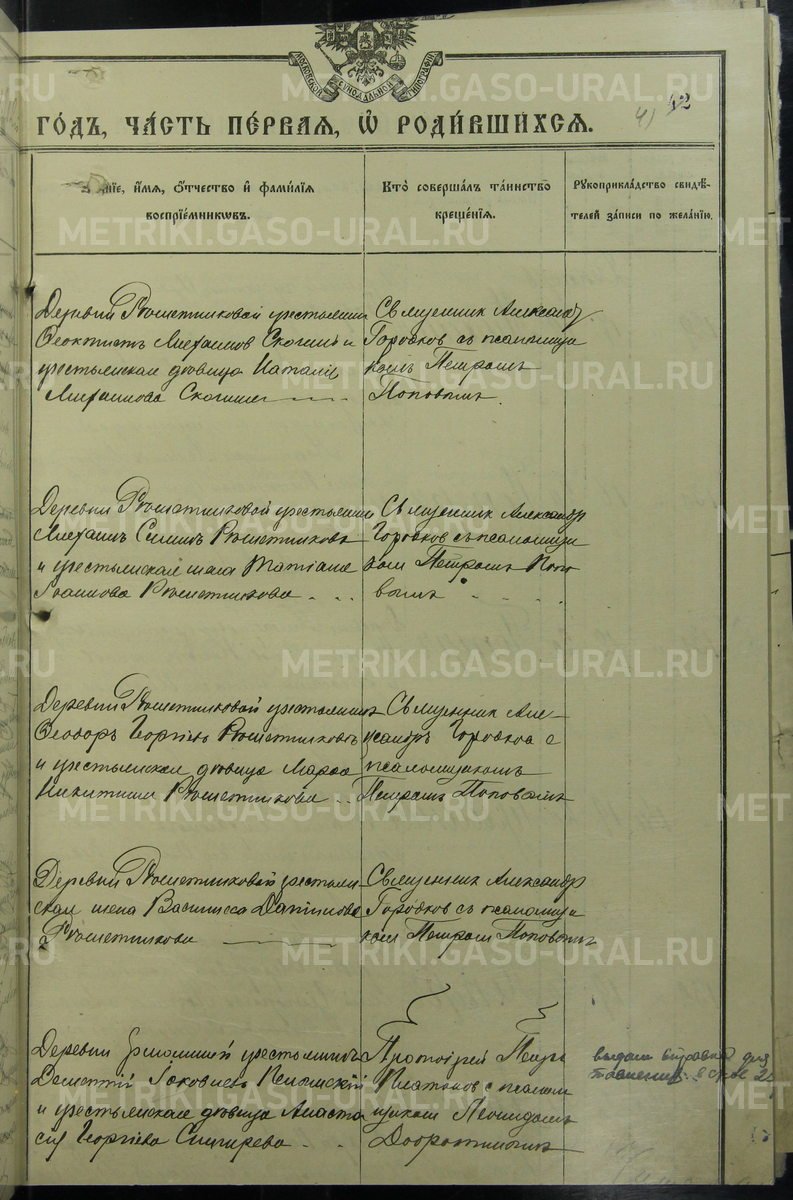 МОСКОВСКОЙ СѴНОДАЛЬНОЙ ТИПОГРАФІИ
41 42
ГОДЪ, ЧАСТЬ ПЕРВАЯ, Ѽ РОДИВШИХСЯ.
Званіе, имя, отчество и фамилія
воспріемниковъ.
Кто совершалъ таинство
крещенія.
Рукоприкладство свидѣ-
телей записи по желанію.
Деревни Рѣшетниковой крестьянинъ
Ѳеоктистъ Михаиловъ и
крестьянская дѣвица Наталія
Михаилова
Священникъ Александръ
Городковъ съ псаломщи
комъ Петромъ
Поповымъ.
Деревни Рѣшетниковой крестьянинъ
Михаилъ Симинъ Рѣшетниковъ
и крестьянская жена Татіана
Іоаннова Рѣшетникова
Священникъ Александръ
Городковъ съ псаломщи
комъ Петромъ Попо
вымъ
Деревни Рѣшетниковой крестьянинъ
Ѳеодоръ Георгіевъ Рѣшетниковъ
и крестьянская дѣвица Марѳа
Никитина Рѣшетникова
Священникъ Але
ксандръ Городковъ с
псаломщикомъ
Петромъ Поповымъ
Деревни Рѣшетниковой крестьян
ская жена Василисса Даніилова
Рѣшетникова
Священникъ Александръ
Городковъ съ псаломщи
комъ Петромъ Поповымъ
Деревни крестьянинъ
Дементій Іаковлевъ
и крестьянская дѣвица Анаста
сія Георгіева Снигирева
Протоіерей Петръ
Платоновъ с псалом
щикомъ Леонидомъ
Добротинымъ
выдана справка для
METRIKI.GASO-URAL.RU